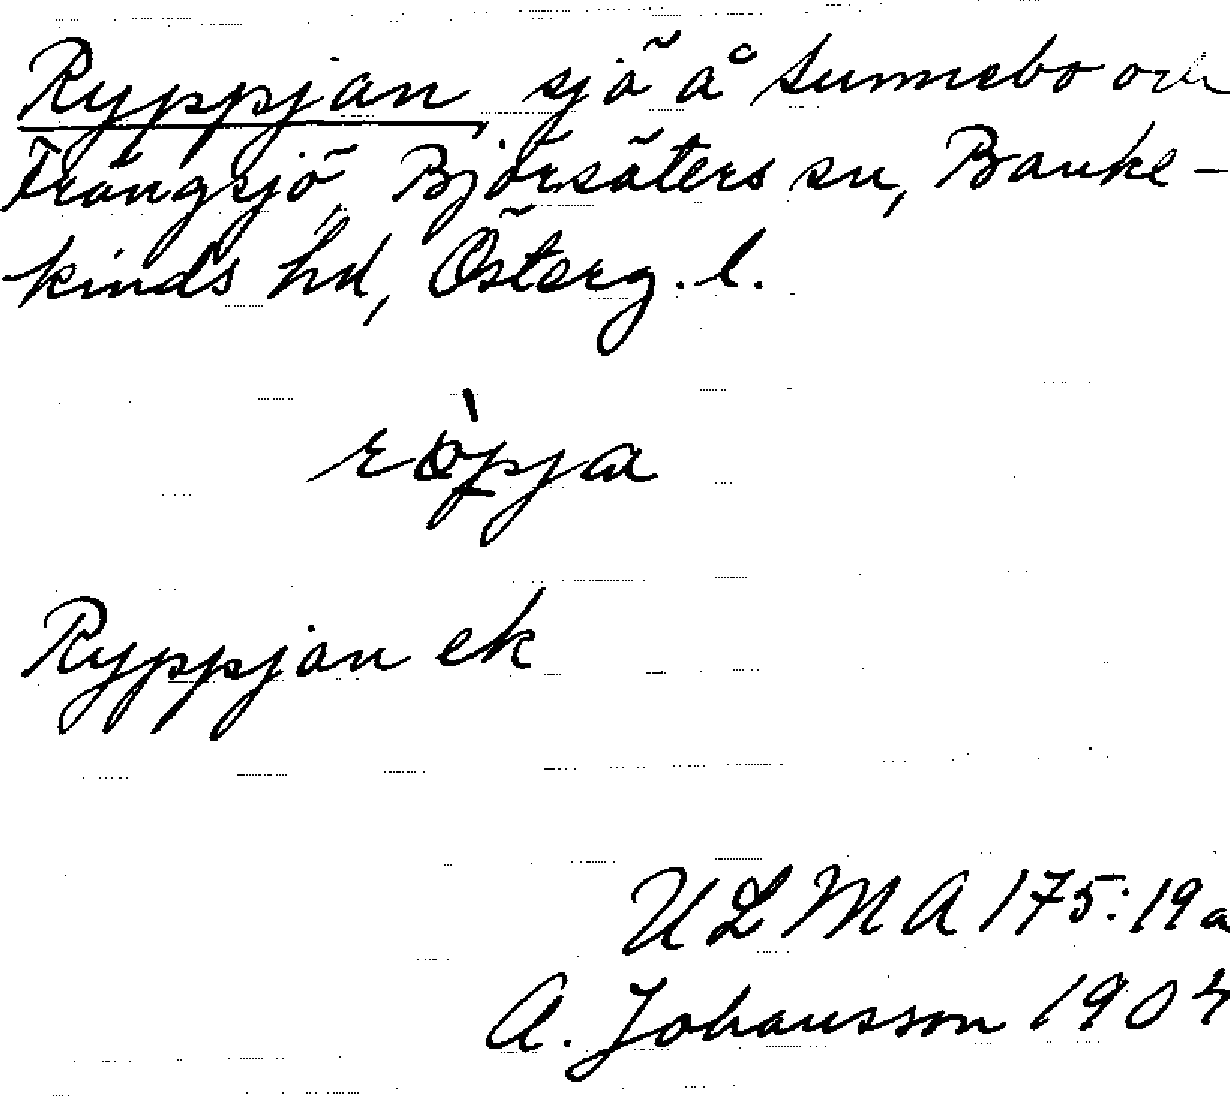 Ryppjan, sjö å Sunnebo och
Trängsjö, Björsäters sn, Banke-
kinds hd, Österg. l.
Ryppjan ek
ULMA 175:19a
A. Johansson 1904